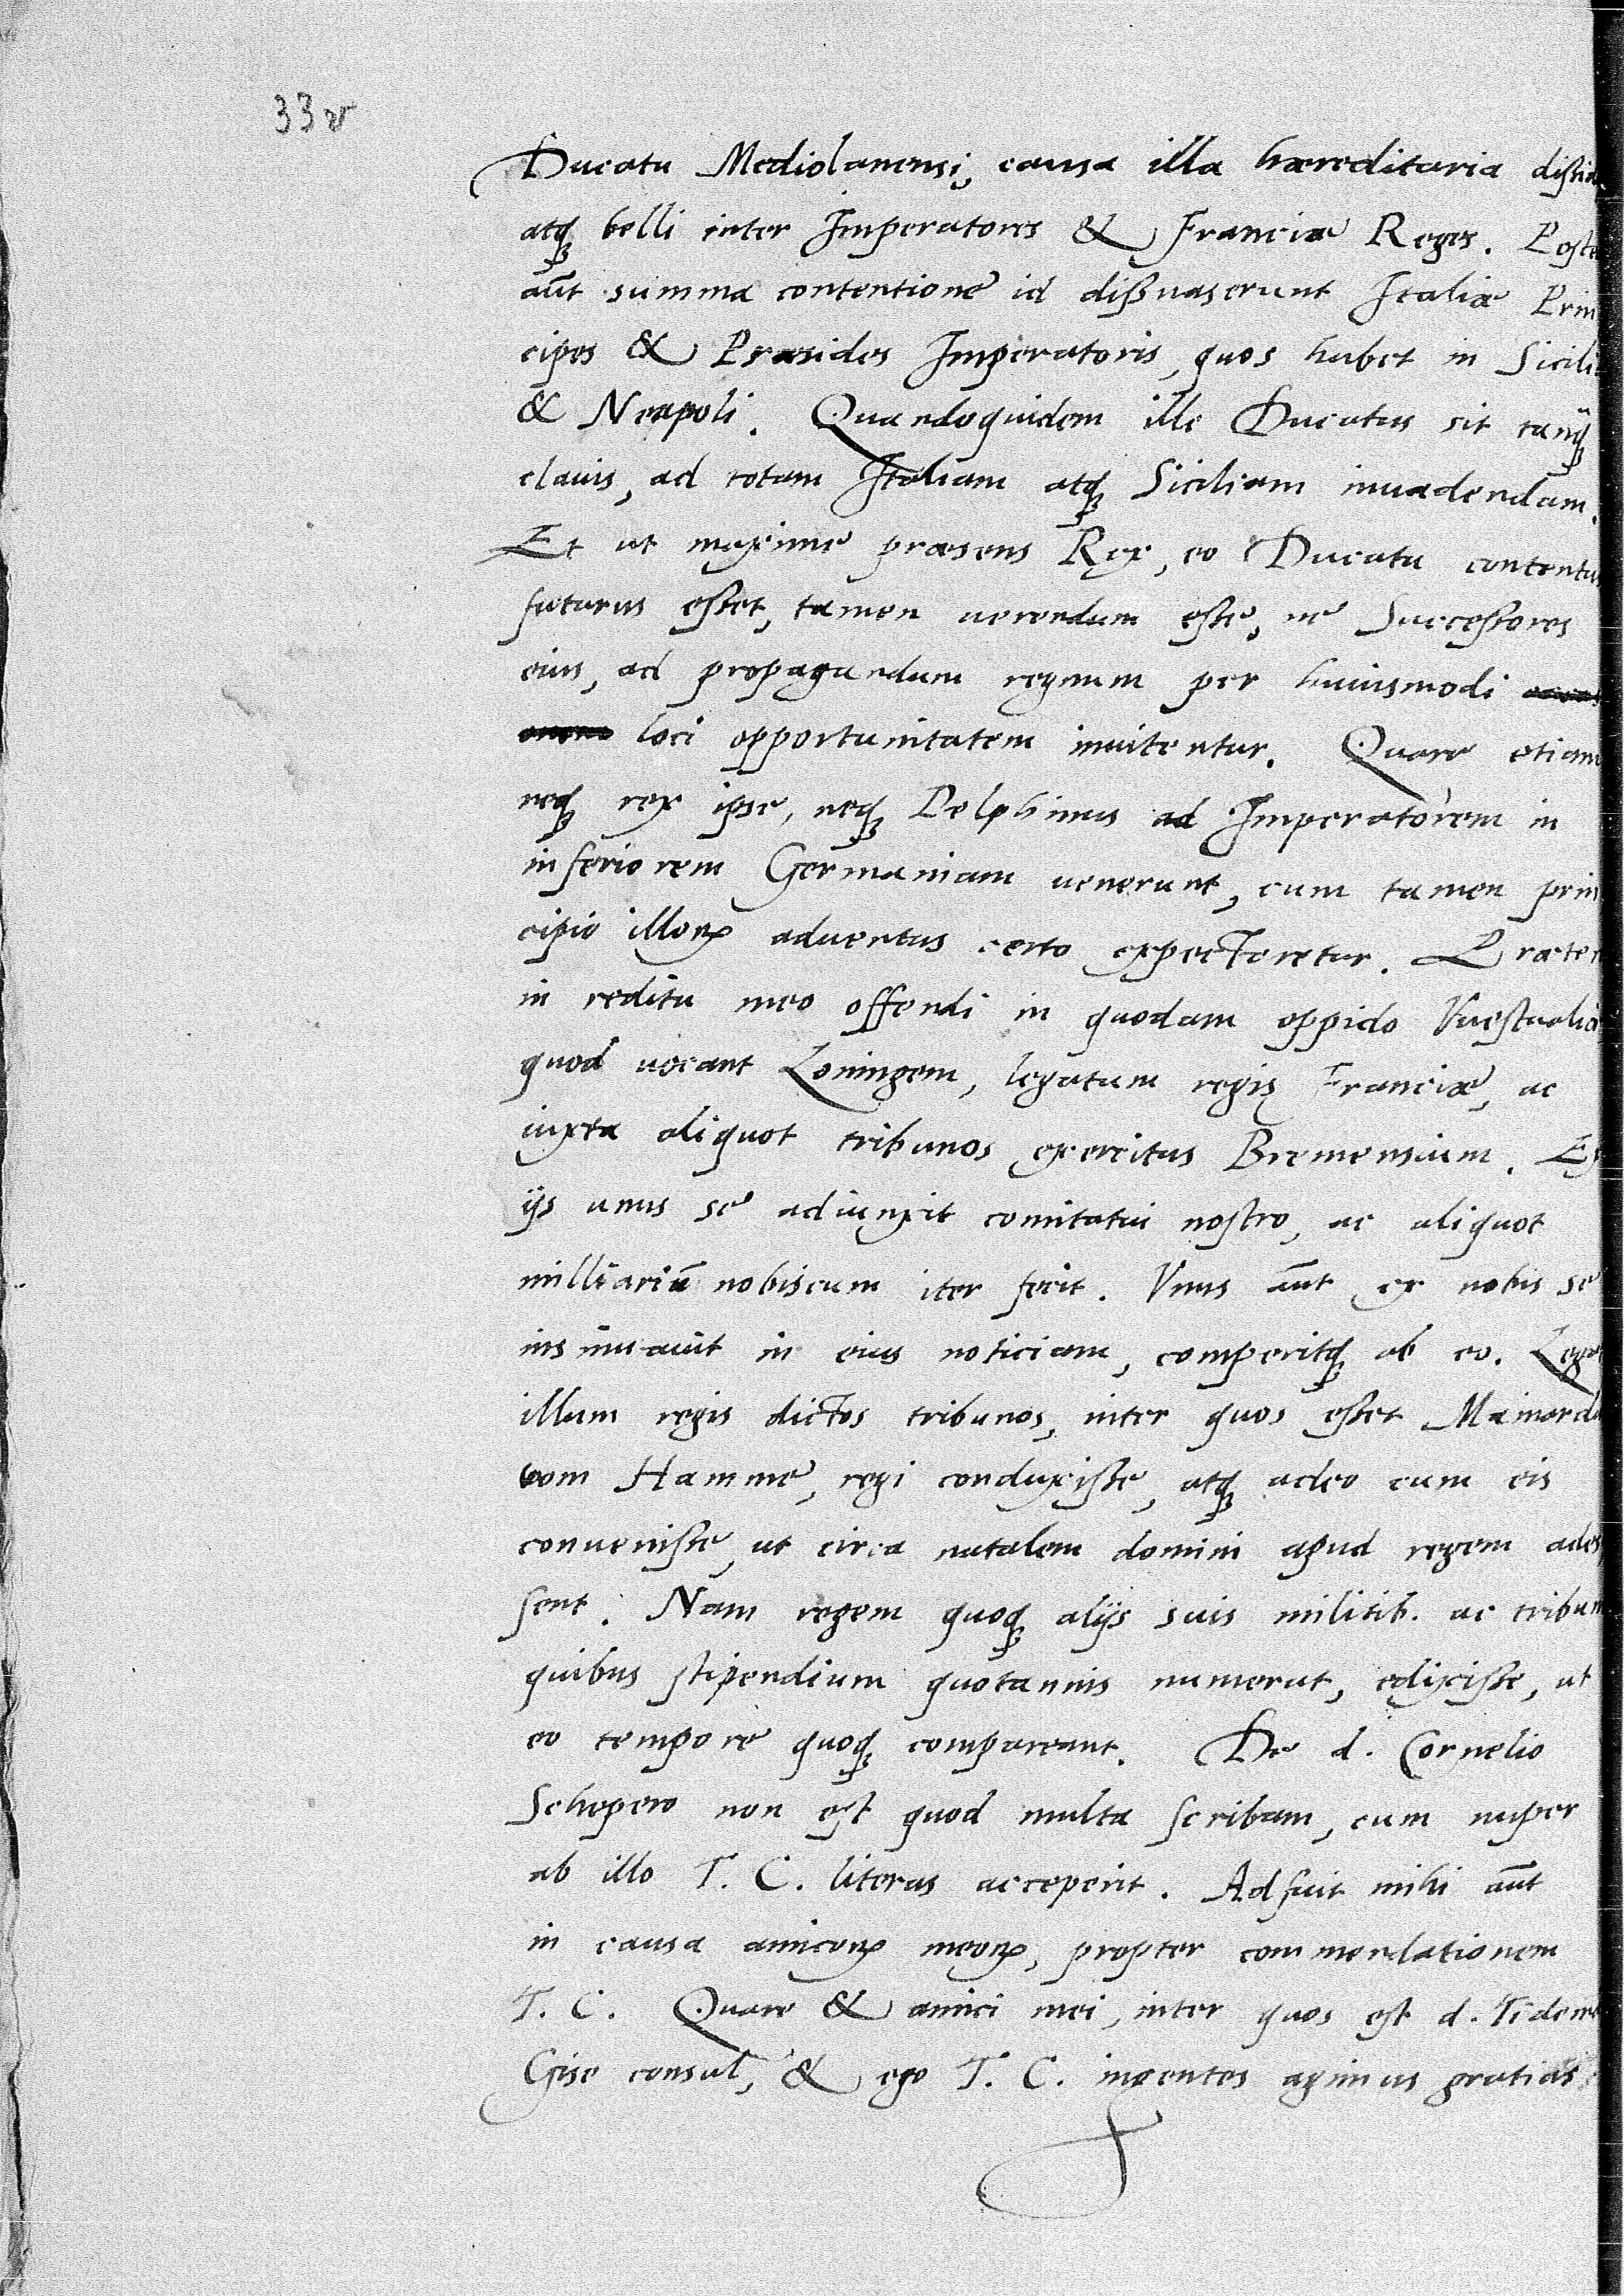 33v
Ducatu Mediolanensi, causa illa hæreditaria dissid
atq́ belli inter Imperatores & Franciæ Reges. Poste
aũt summa contentione id dissuaserunt Italiæ Prin
cipes & Præsides Imperatoris, quos habet in Sicili
& Neapoli. Quandoquidem ille Ducatus sit tanq̃
clauis, ad totam Italiam atq́ Siciliam inuadendam.
Et ut maxime præsens Rex, eo Ducatu contentus
futurus esset, tamen uerendum esse, ne Successores
eius, ad propagandum regnum per huiusmodi
loci opportunitatem inuitentur. Quare etiam
neq́ rex ipse, neq́ Delphinus ad Imperatorem in
inferiorem Germaniam uenerunt, cum tamen prin
cipio illorꝝ aduentus certo expectaretur. Præter
in reditu meo offendi in quodam oppido Vuestualiæ
quod uocant Loningem, legatum regis Franciæ, ac
iuxta aliquot tribunos exercitus Bremensium. Ex
ijs unus se adiunxit comitatui nostro, ac aliquot
milliariũ nobiscum iter fecit. Vnus aũt ex nobis se
insinuauit in eius noticiam, comperitq́ ab eo. Legat
illum regis dictos tribunos, inter quos esset Mainardu
vom Hamme, regi conduxisse, atq́ adeo cum eis
conuenisse, ut circa natalem domini apud regem ades
sent. Nam regem quoq́ alijs suis militib. ac tribun
quibus stipendium quotannis numerat, edixisse, ut
eo tempore quoq́ compareant. De d. Cornelio
Schepero non est quod multa scribam, cum nuper
ab illo T. C. literas acceperit. Adfuit mihi aũt
in causa amicorꝝ meorꝝ, propter commendationem
T. C. Quare & amici mei, inter quos est d. Tidem
Gise consul, & ego T. C. ingentes agimus gratias